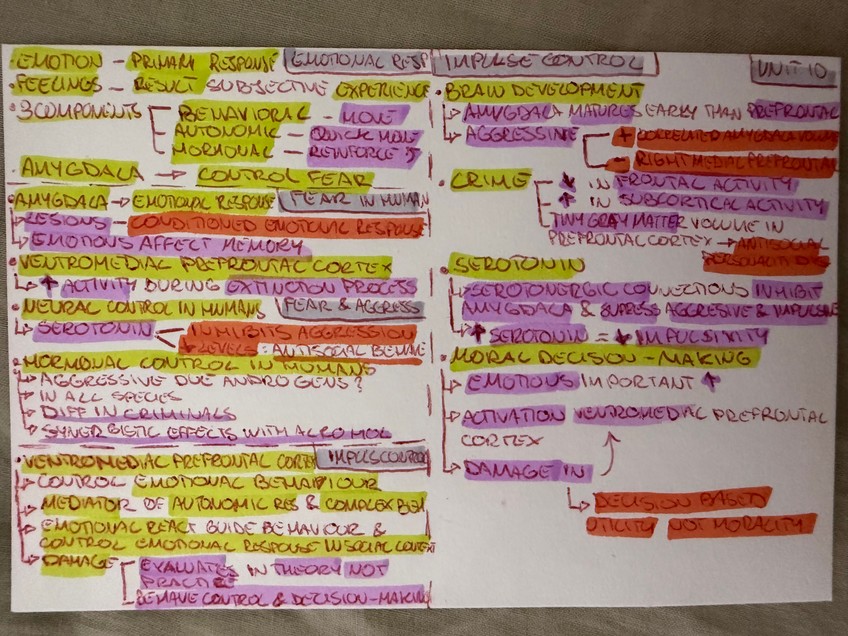 ·EMOTION – PRIMARY RESPONSE EMOTIONAL RESP
·FEELINGS – RESULT SUBJECTIVE EXPERIENCE
·3 COMPONENTS BEHAVIORAL – MOVE
AUTONOMIC – QUICK MOVE
HORMONAL – REINFORCE
·AMYGDALA → CONTROL FEAR
·AMYGDALA → EMOTIONAL RESPONSE FEAR IN HUMAN
↳ LESIONS – CONDITIONED EMOTIONAL RESPONSE
↳ EMOTIONS AFFECT MEMORY
·VENTROMEDIAL PREFRONTAL CORTEX
↳ ↑ ACTIVITY DURING EXTINCTION PROCESS
·NEURAL CONTROL IN HUMANS FEAR & AGGRESS
↳ SEROTONIN INHIBITS AGGRESSION
↓ LEVELS: ANTISOCIAL BEHAVE
·HORMONAL CONTROL IN HUMANS
↳ AGGRESSIVE DUE ANDROGENS?
↳ IN ALL SPECIES
↳ DIFF IN CRIMINALS
↳ SYNERGISTIC EFFECTS WITH ALCOHOL
·VENTROMEDIAL PREFRONTAL CORTEX IMPULS CONTROL
↳ CONTROL EMOTIONAL BEHAVIOUR
↳ MEDIATOR OF AUTONOMIC RES & COMPLEX BEH
↳ EMOTIONAL REACT GUIDE BEHAVIOUR &
CONTROL EMOTIONAL RESPONSE IN SOCIAL CONTEXT
↳ DAMAGE EVALUATES IN THEORY NOT
PRACTICE
BEHAVE CONTROL & DECISION-MAKING
IMPULSE CONTROL UNIT 10
·BRAIN DEVELOPMENT
↳ AMYGDALA MATURES EARLY THAN PREFRONTAL
↳ AGGRESSIVE + CORRELATED AMYGDALA VOLUME
– RIGHT MEDIAL PREFRONTAL
·CRIME ↓ IN FRONTAL ACTIVITY
↑ IN SUBCORTICAL ACTIVITY
TINY GRAY MATTER VOLUME IN
PREFRONTAL CORTEX → ANTISOCIAL
PERSONALITY DIS
·SEROTONIN
↳ SEROTONERGIC CONNECTIONS INHIBIT
AMYGDALA & SUPRESS AGGRESIVE & IMPULSIVE
↳ ↑ SEROTONIN = ↓ IMPULSIVITY
·MORAL DECISION-MAKING
↳ EMOTIONS IMPORTANT ↑
↳ ACTIVATION VENTROMEDIAL PREFRONTAL
CORTEX
↳ DAMAGE IN
↳ DECISION BASED
UTILITY NOT MORALITY